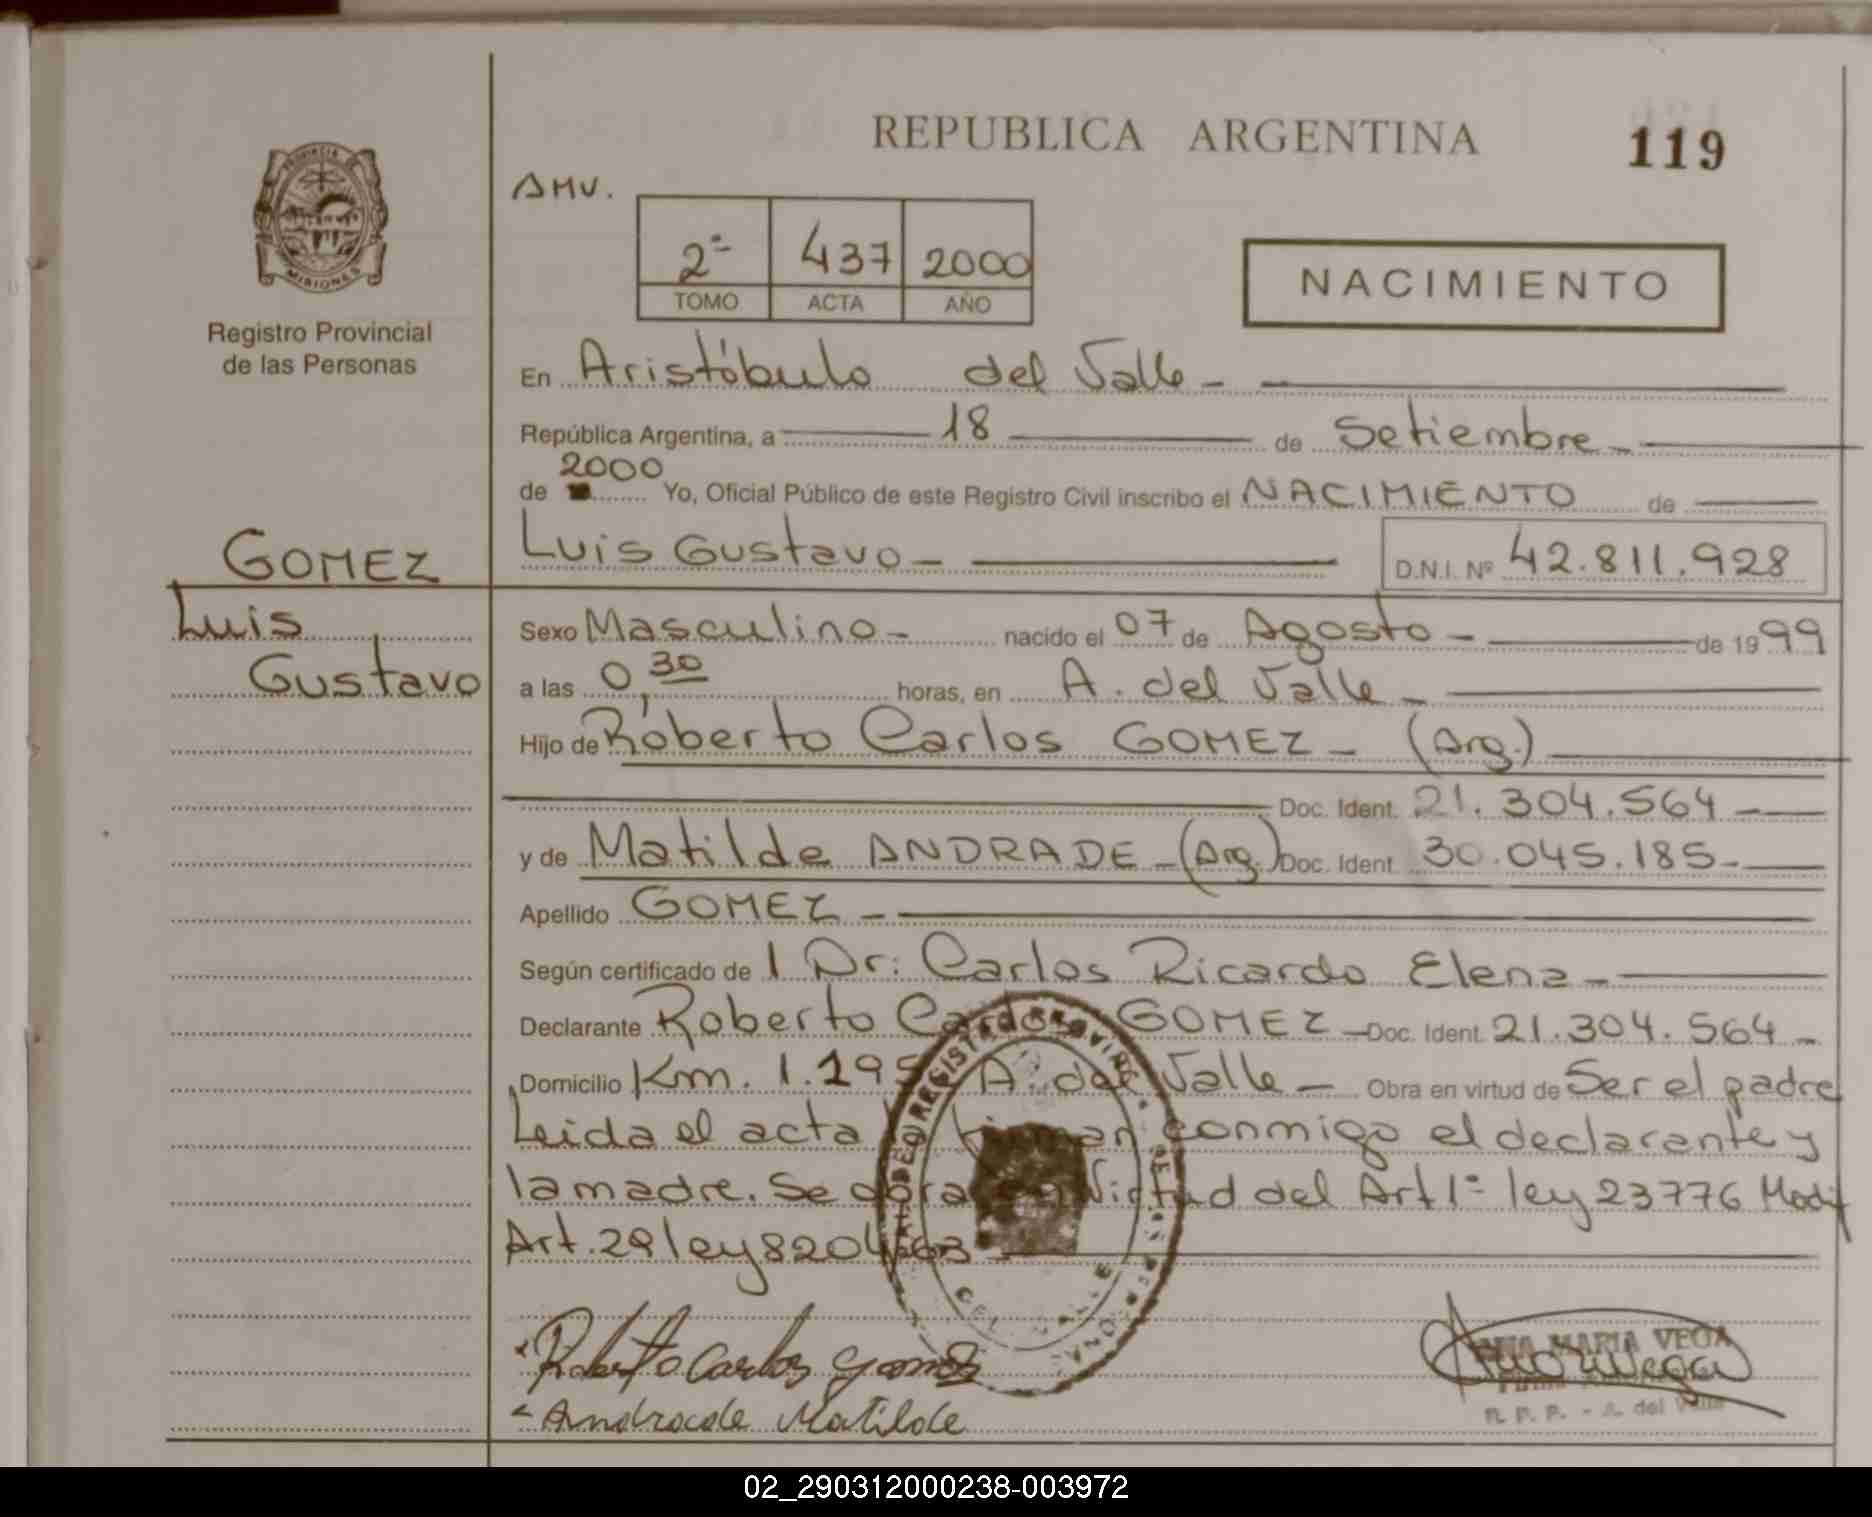 REPUBLICA ARGENTINA
119
AMV.
2º 437 2000
TOMO ACTA AÑO
NACIMIENTO
PROVINCIA DE
MISIONES
Registro Provincial
de las Personas
En Aristóbulo del Valle -
República Argentina, a 18 de Setiembre -
2000
de Yo, Oficial Público de este Registro Civil inscribo el NACIMIENTO de
GOMEZ
Luis
Gustavo
Luis Gustavo - D.N.I. Nº 42.811.928
Sexo Masculino - nacido el 07 de Agosto - de 1999
a las 0,30 horas, en A. del Valle -
Hijo de Roberto Carlos GOMEZ - (Arg.)
Doc. Ident. 21.304.564 -
y de Matilde ANDRADE - (Arg.) Doc. Ident. 30.045.185 -
Apellido GOMEZ -
Según certificado de 1 Dr: Carlos Ricardo Elena -
Declarante Roberto Carlos GOMEZ - Doc. Ident. 21.304.564 -
Domicilio Km. 1.295 A. del Valle - Obra en virtud de Ser el padre
Leida el acta firman conmigo el declarante y
la madre. Se obra en Virtud del Art 1º ley 23776 Modif
Art. 29 ley 8204/63
REGISTRO PROVINC DE LAS PERSONA
DEL VALLE
Roberto Carlos Gomez
Andrade Matilde
ANA MARIA VEGA
R. P. P. - A. del Valle
02_290312000238-003972